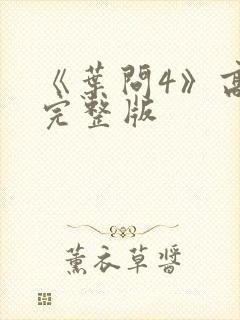 《葉問4》高
完整版
薰衣草醬